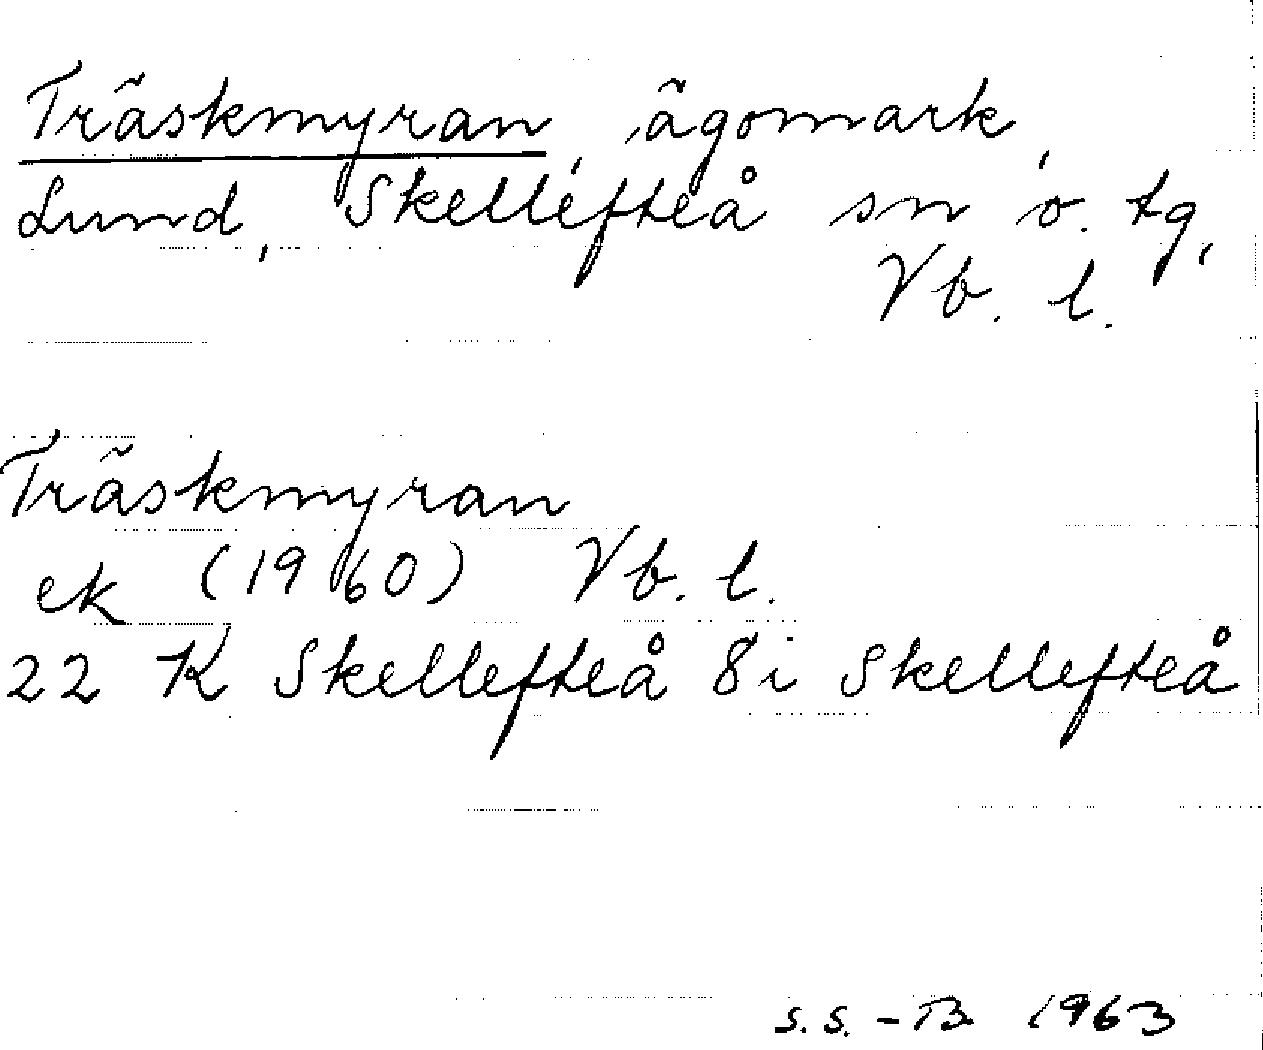 Träskmyran, ägomark,
Lund, Skellefteå sn o. tg,
Vb. l.
Träskmyran
ek (1960) Vb. l.
22 K Skellefteå 8i Skellefteå
S.S.-B 1963